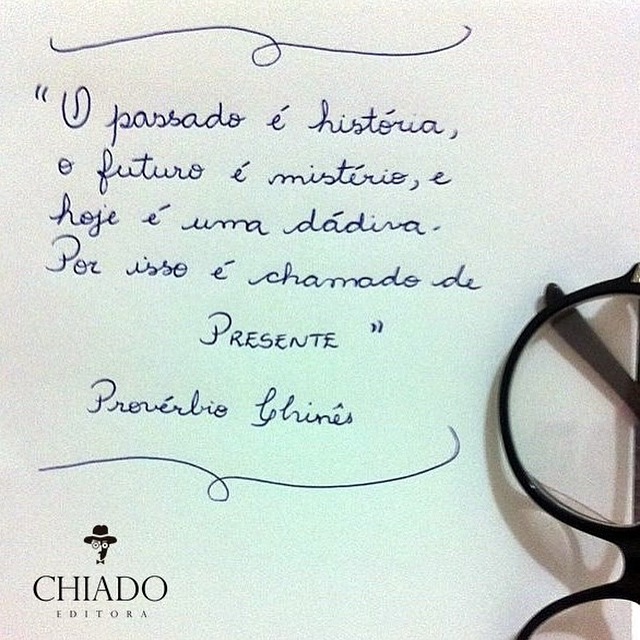 "O passado é história,
o futuro é mistério, e
hoje é uma dádiva.
Por isso é chamado de
PRESENTE"
Provérbio Chinês
CHIADO
EDITORA